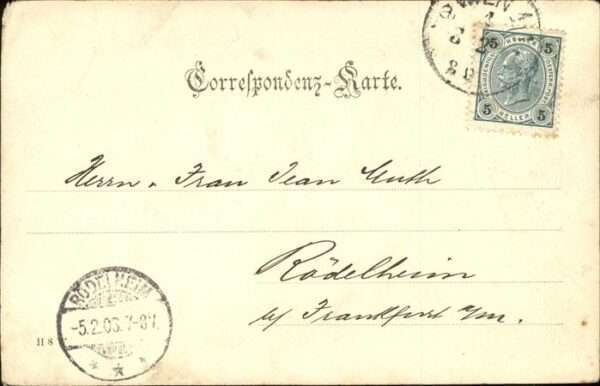 WIEN
5 5
5 HELLER 5
Correspondenz-Karte.
Herrn u. Frau Jean Muth
Rödelheim
b/ Frankfurt a/m.
RÖDELHEIM
-5.2.03. 7-8V.
H 8